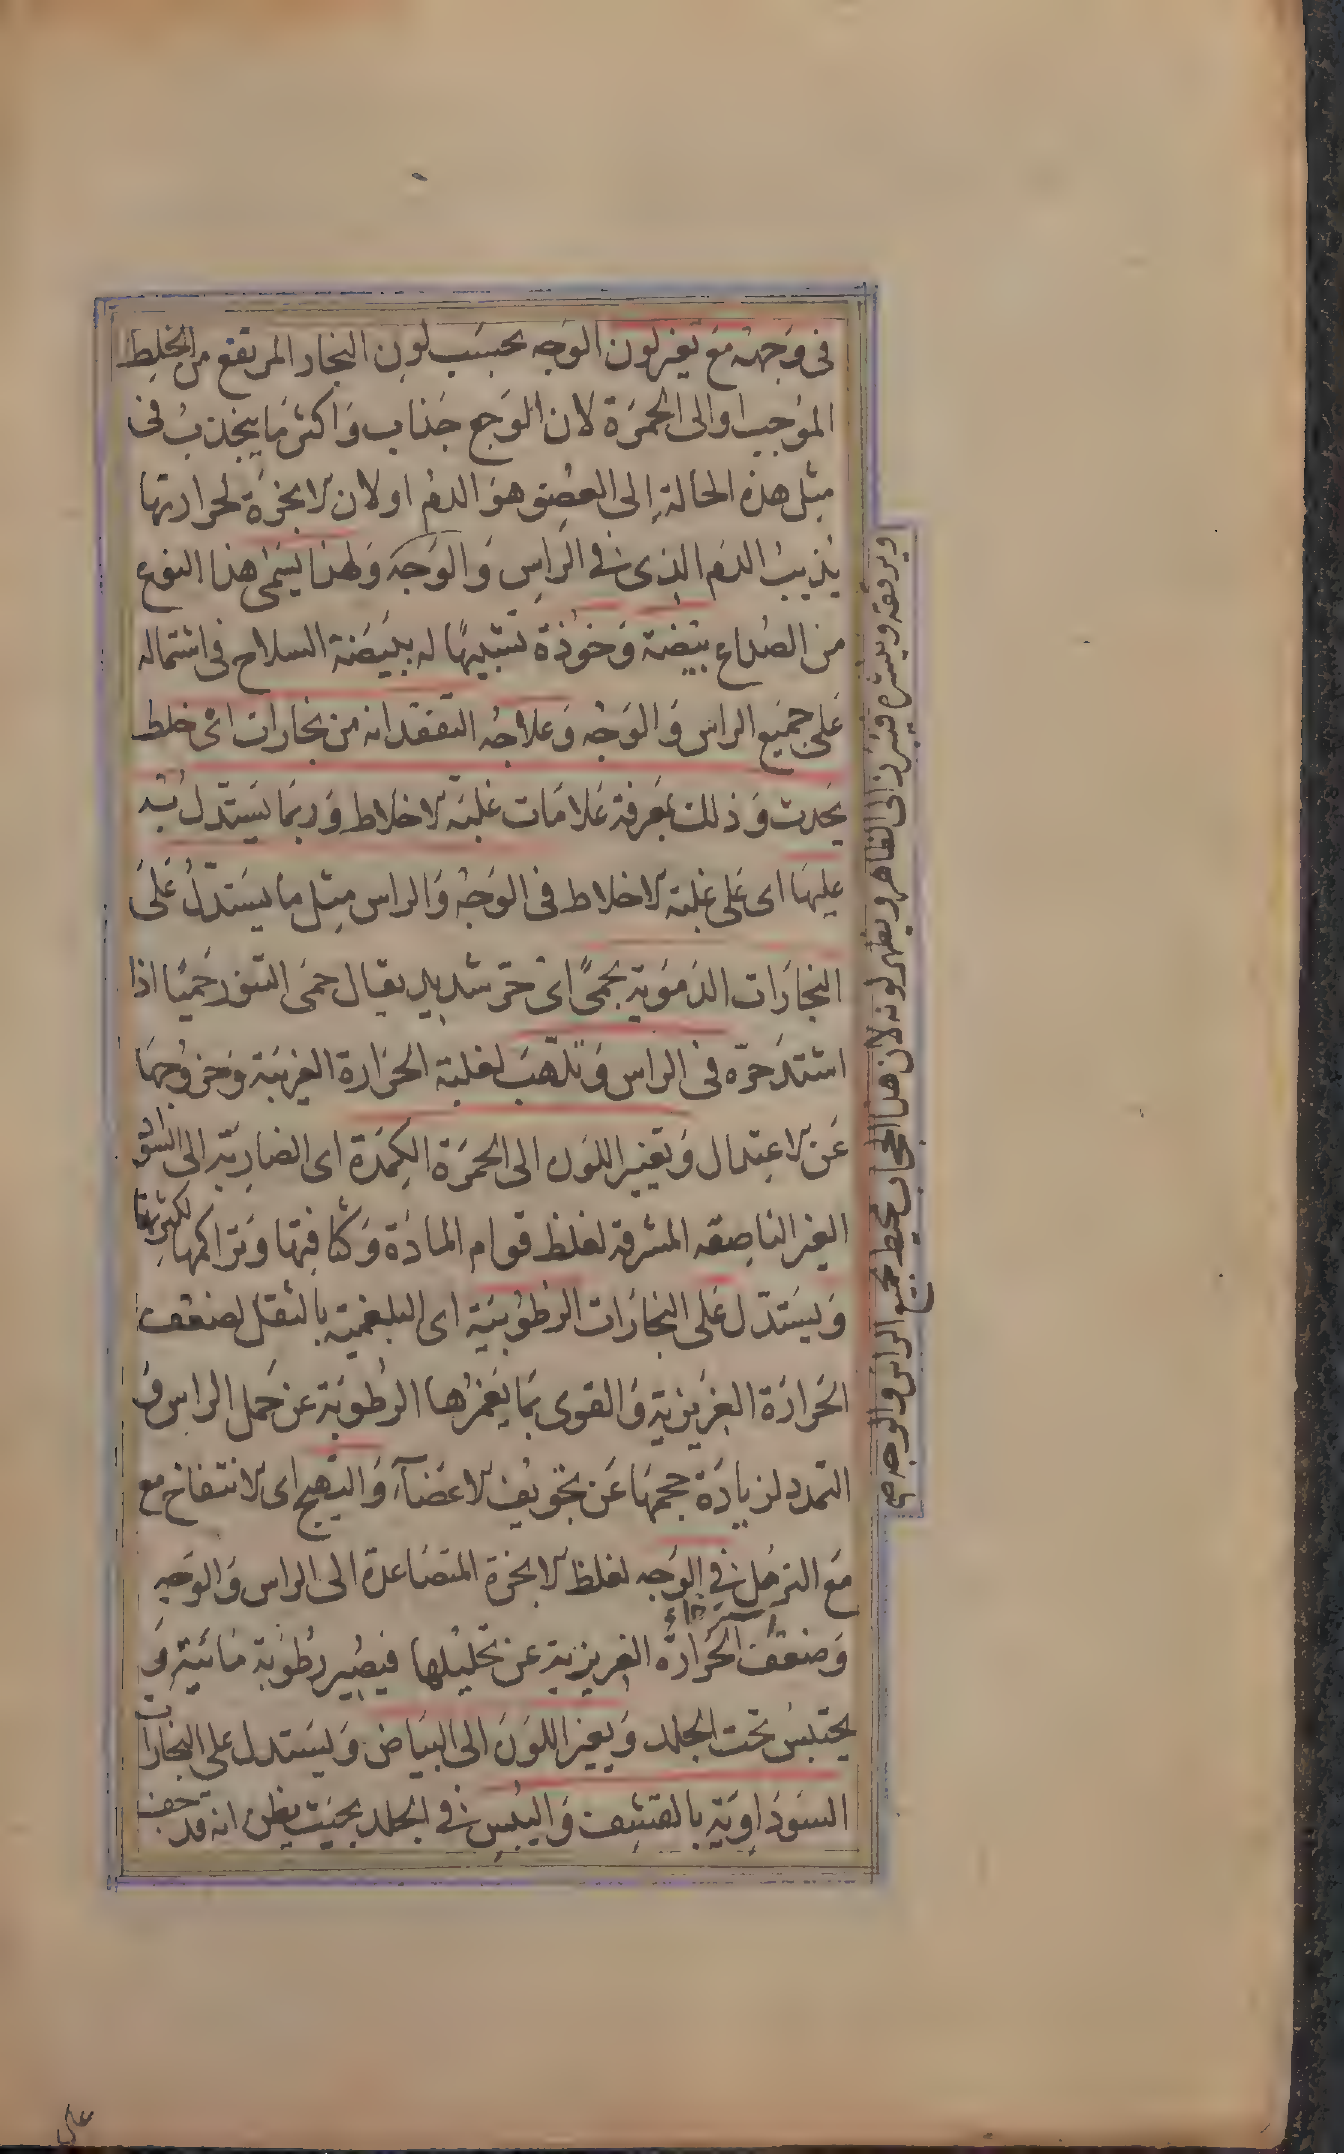 في وجهه مع تغير لون الوجه بحسب لون البخار المرتفع من الخلط
الموجب او الى الحمرة لان الوجع جذاب و اكثر ما ينجذب في
مثل هذه الحالة إلى العضو هو الدم او لان الابخرة لحرارتها
يذيب الدم الذى في الراس و الوجه و لهذا يسمى هذا النوع
من الصداع بيضة و خوذة تشبيها له ببيضة السلاح في اشتماله
على جميع الراس و الوجه و علاجه التفقد انه من بخارات اى خلط
يحدث و ذلك بمعرفة علامات غلبة الاخلاط و ربما يستدل به
عليها اى على غلبة الاخلاط في الوجه و الراس مثل ما يستدل على
البخارات الدموية بحمىً اى حر شديد يقال حمى التنور حميا اذا
اشتد حره في الراس و تلهب لغلبة الحرارة الغريبة و خروجها
عن الاعتدال و تغيير اللون الى الحمرة الكمدة اى الضاربة الى السواد
الغير الناصعة المشرقة لغلظ قوام المادة و كثافتها و تراكمها لكثرتها
و يستدل على البخارات الرطوبية اى البلغمية بالثقل لضعف
الحرارة الغريزية و القوى بما يغمرها الرطوبة عن حمل الراس و
التمدد لزيادة حجمها عن تجويف الاعضآء و التهيج اى الانتفاخ مع
مع الترهل في الوجه لغلظ الابخرة المتصاعدة الى الراس و الوجه
و ضعف الحرارة الغريزية عن تحليلها فيصير رطوبة مائية و
يحتبس تحت الجلد و يغير اللون الى البياض و يستدل على البخارات
السوداوية بالقشف و اليبس في الجلد بحيث يظن انه قد جف
ويرققه و ينشره فيبرز الى الظاهر و يظهر لونه لان هذا الحجاب محيط بجميع الراس و الوجه صح
على